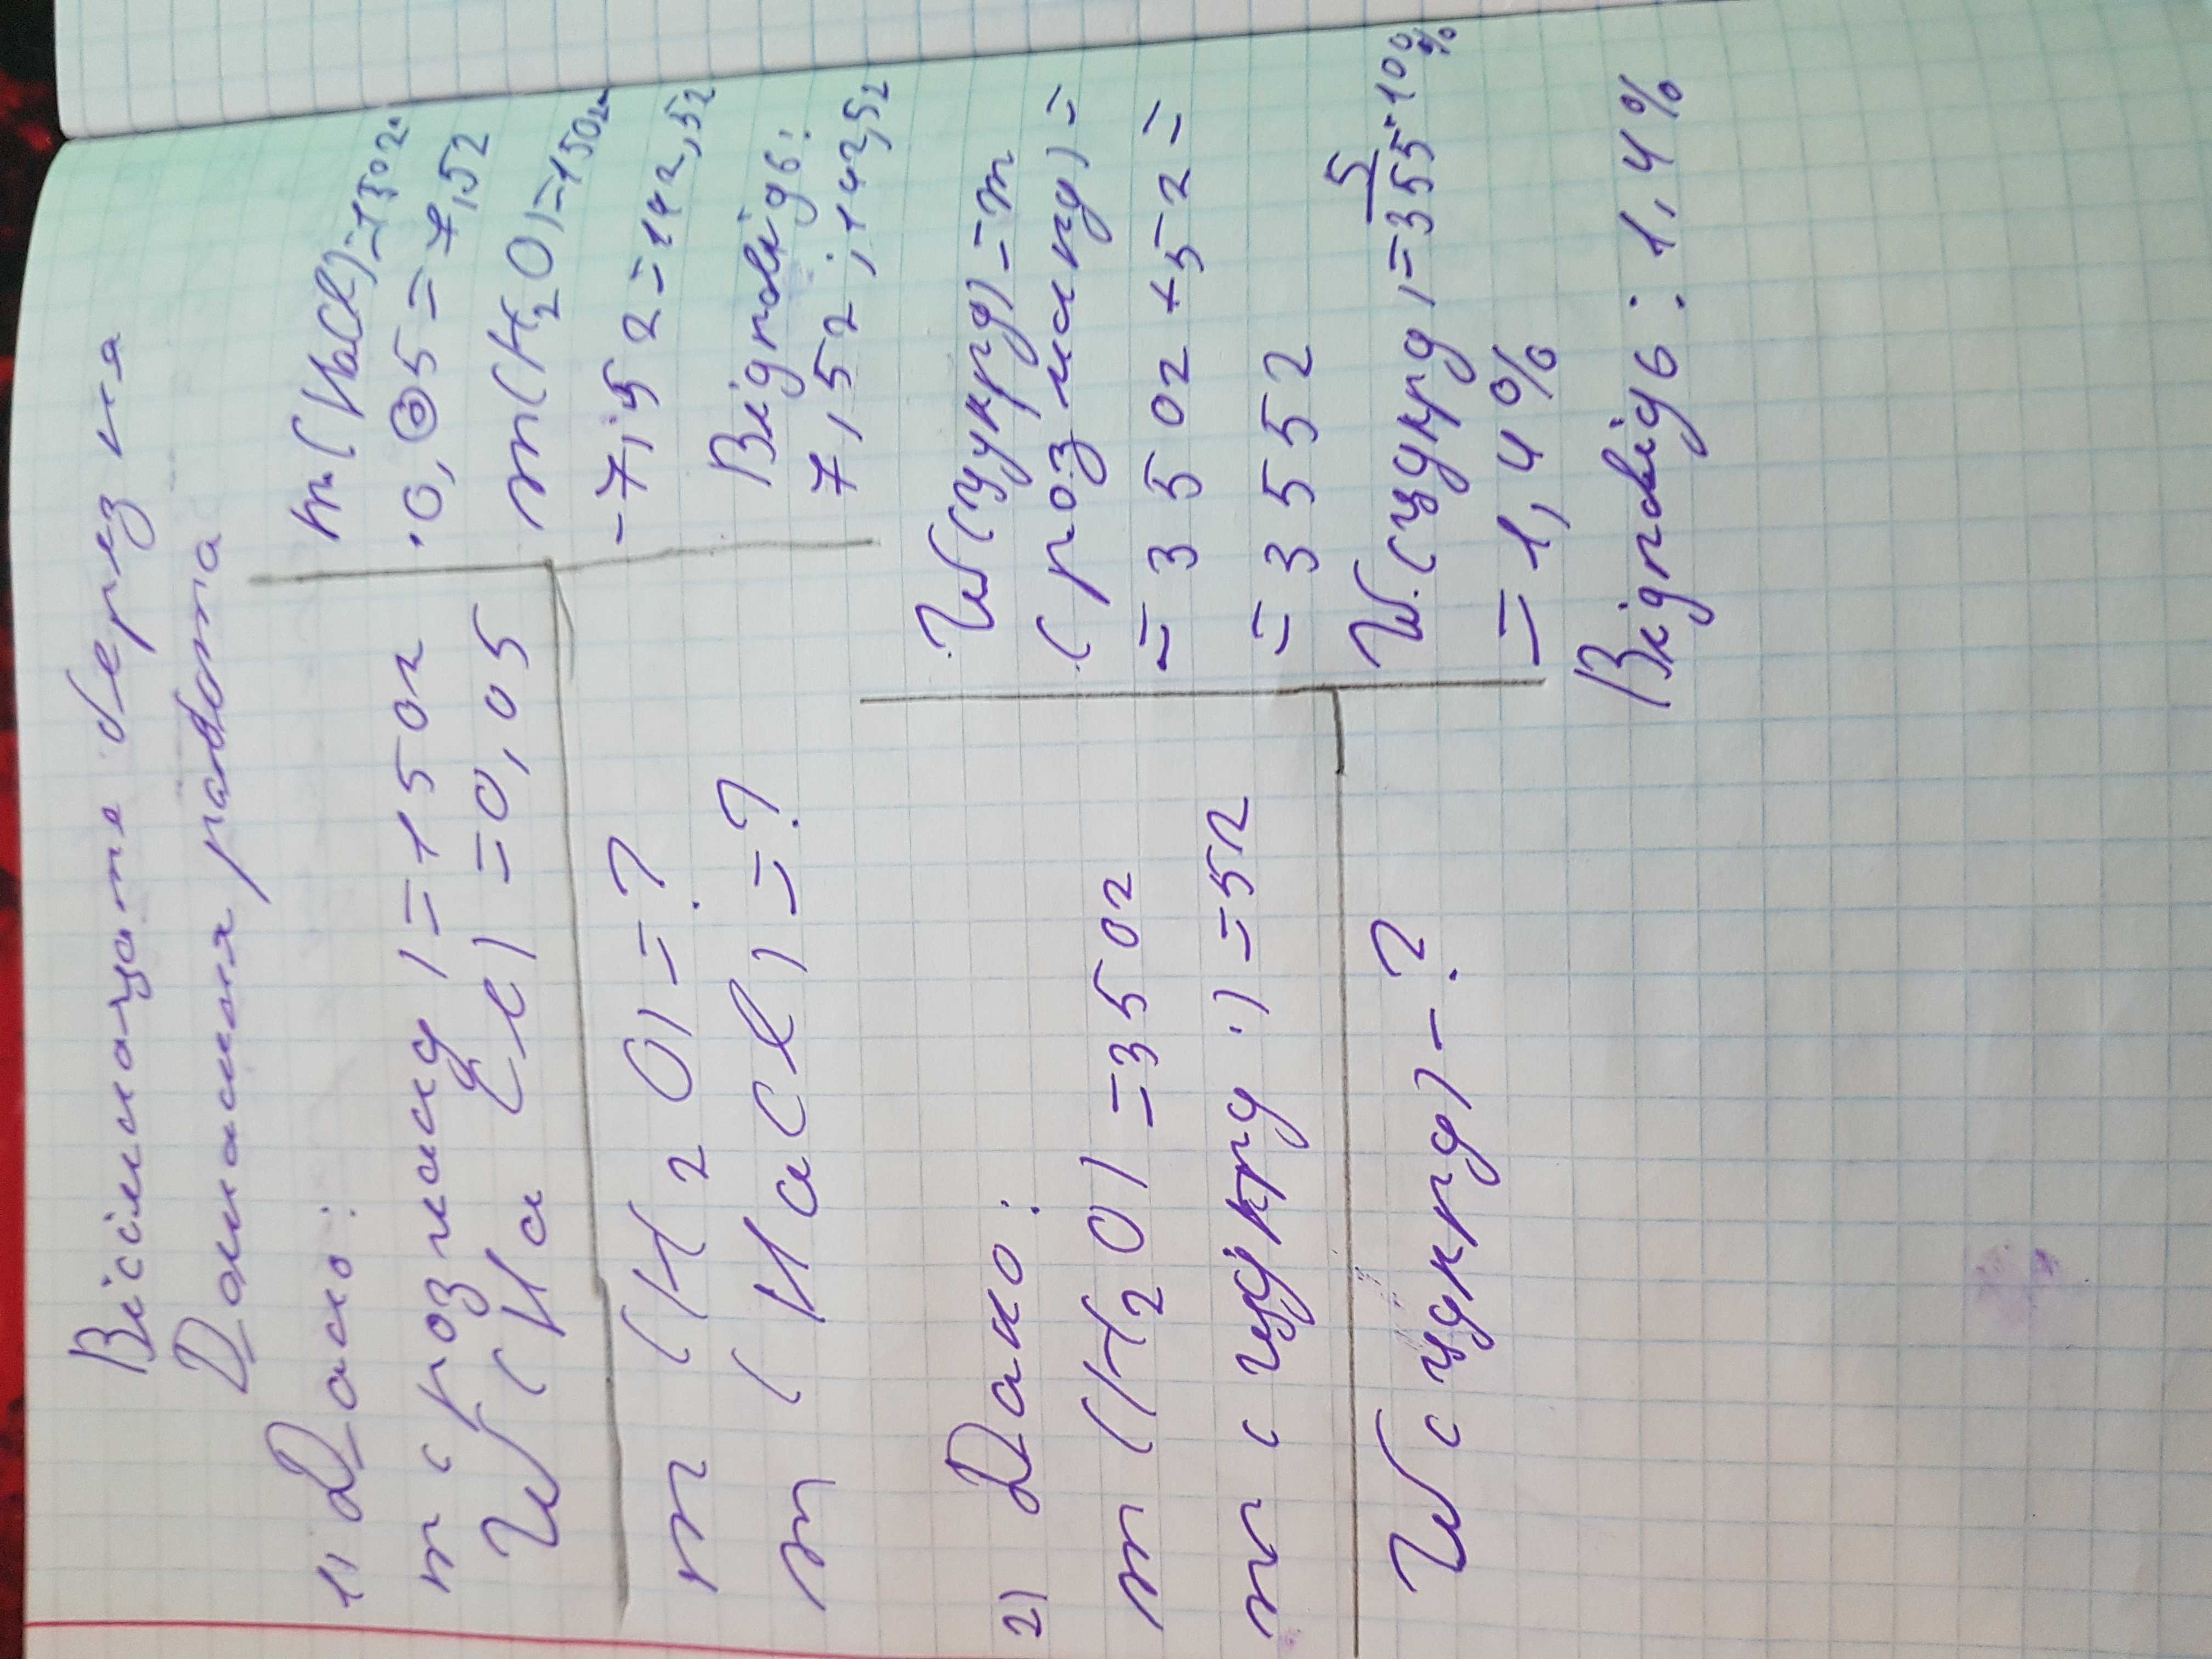 Вісімнацяте березня
Домашня работа
1) Дано:
m (розчину) = 150г
W (NaCl) = 0,05
m (H2O) = ?
m (NaCl) = ?
m (NaCl) = 150г·
·0,05 = 7,5г
m(H2O) = 150г-
-7,5г = 142,5г
Відповідь:
7,5г; 142,5г
2) Дано:
m (H2O) = 350г
m (цукру) = 5г
W (цукру) - ?
W (цукру) = m
(розчину) =
= 350г + 5г =
= 355г
W (цукру) = 5/355 · 10%
= 1,4%
Відповідь: 1,4%